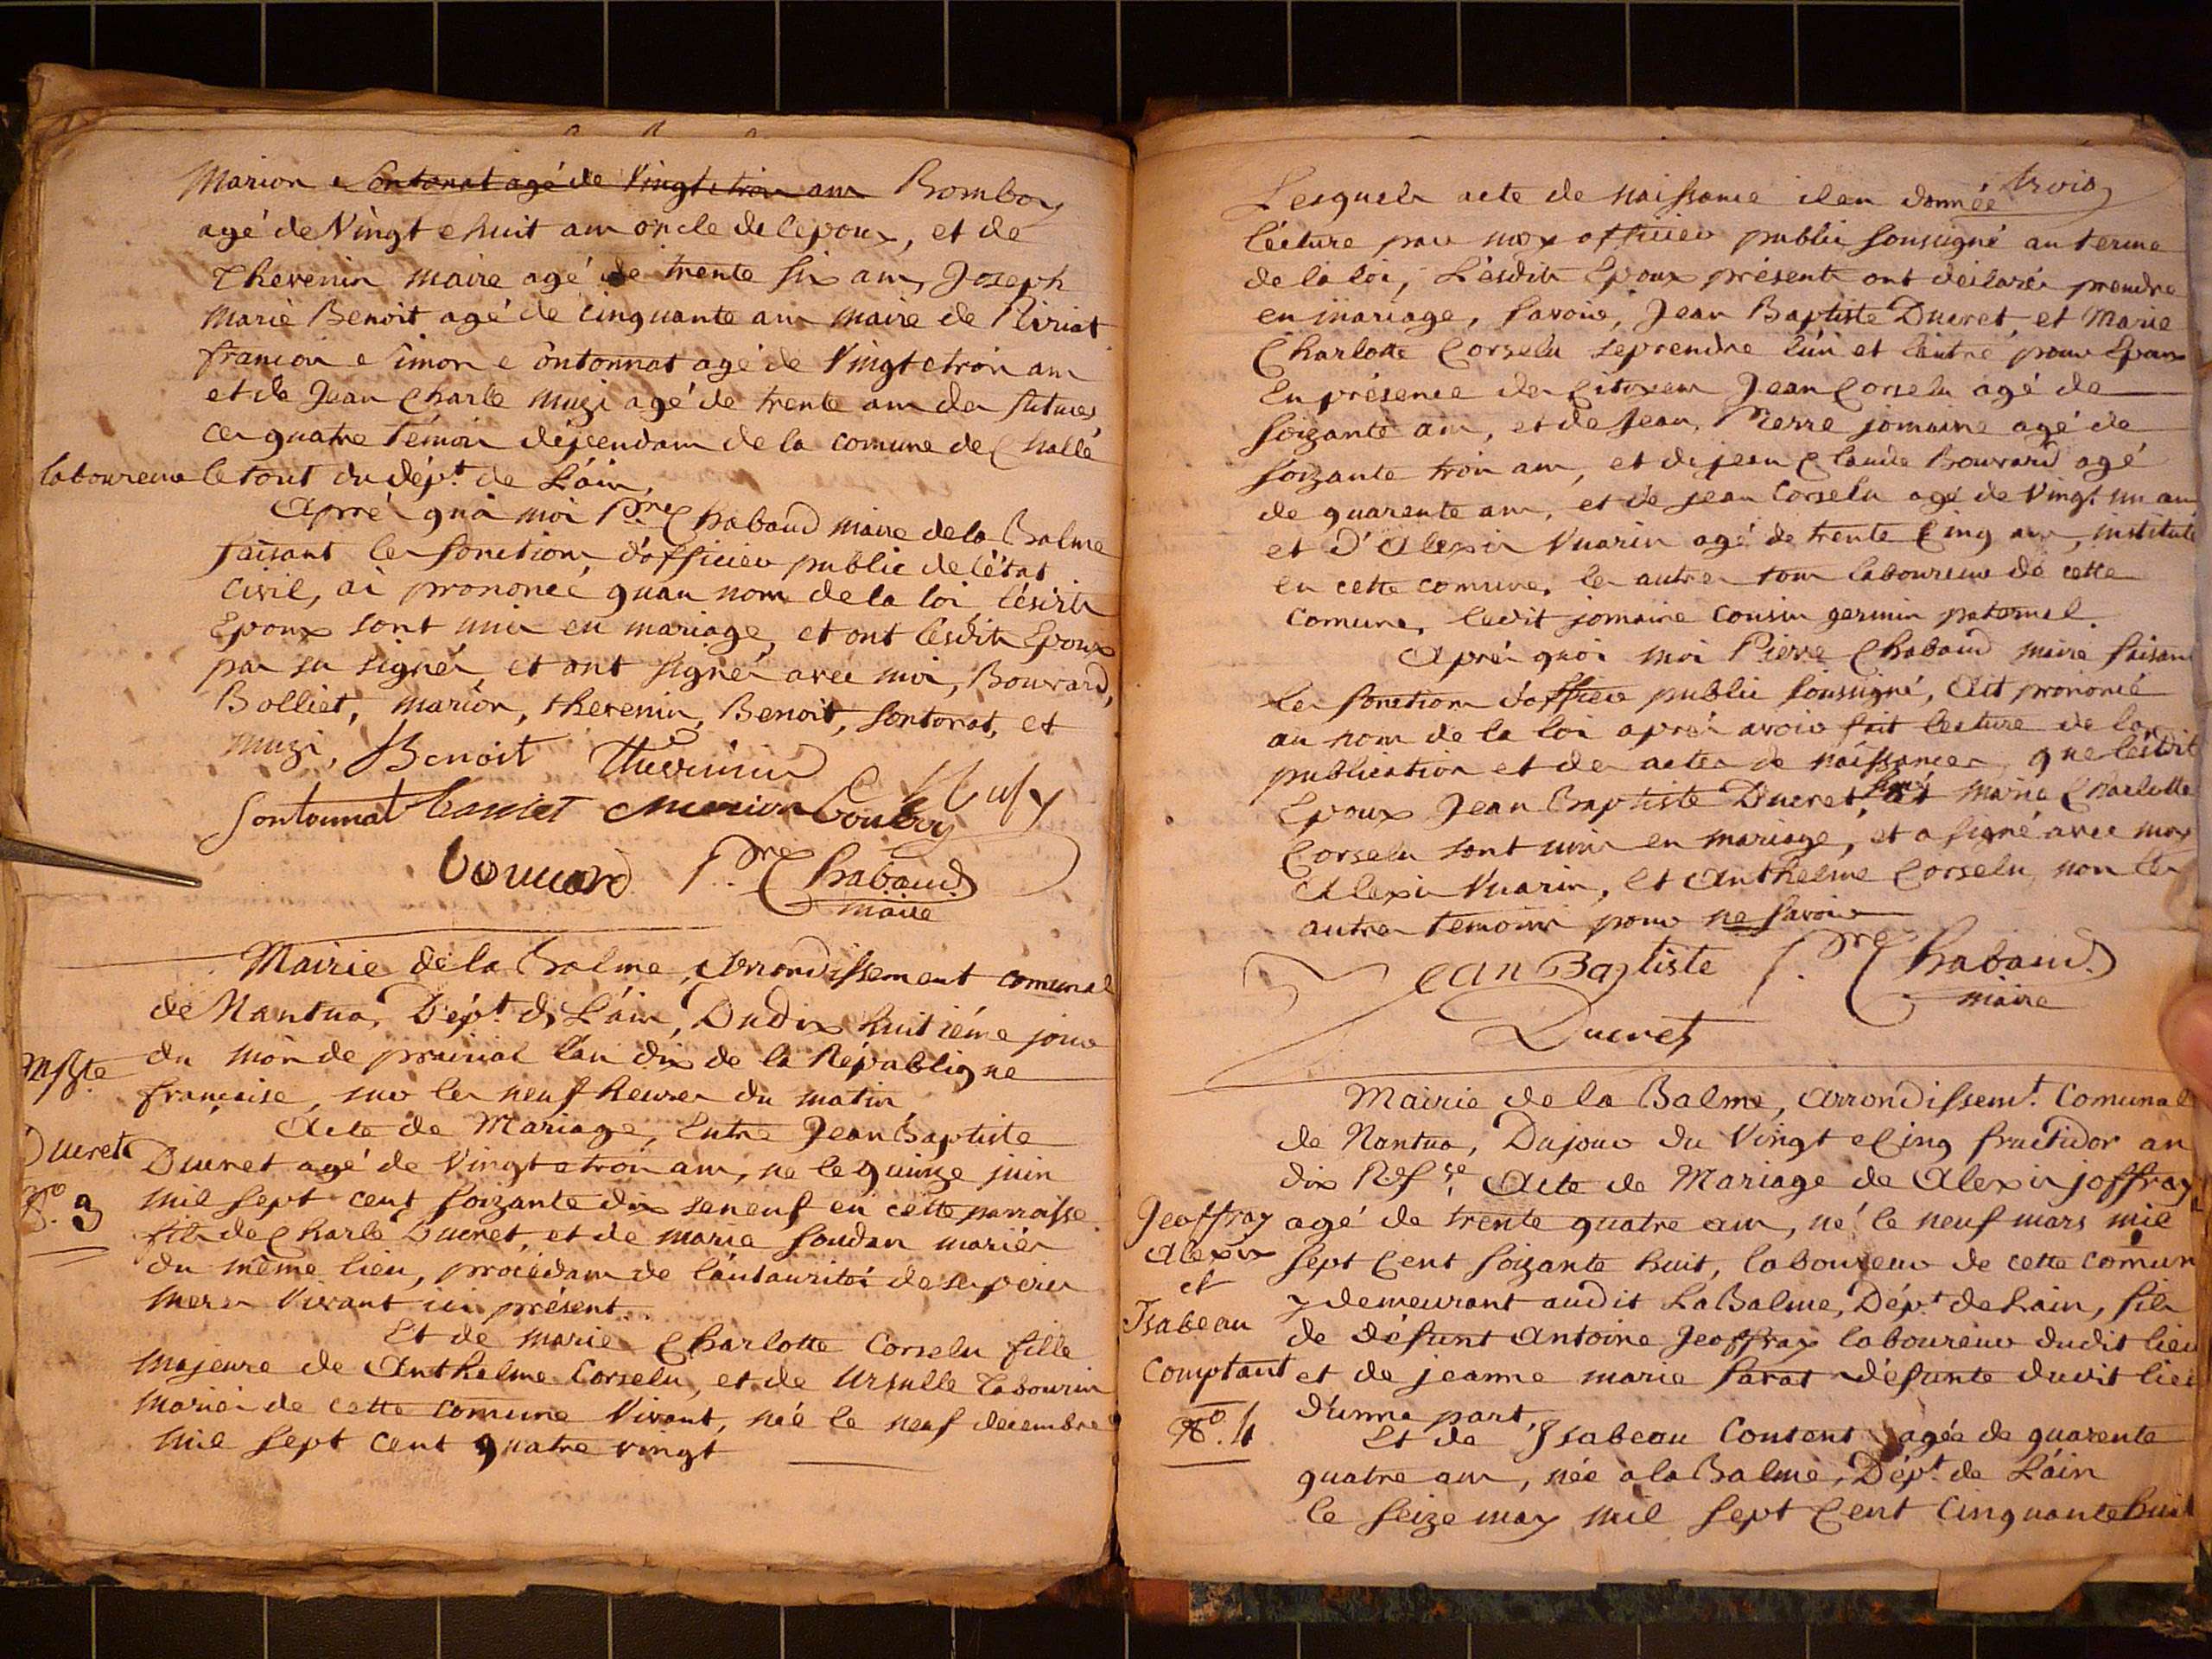 Marion e Sontonat agé de Vingt e troi am Bomboy
agé de Vingt e huit am oncle de l'epoux, et de
Thevenin maire agé de trente six am, Joseph
Marie Benoit agé de Cinquante am maire de
francoi e Simon e Sontonnat agé de Vingt e troi am
et de Jean Charle Muzi agé de trente am der futures,
Cer quatre témoin dépendam de la comune de Challe
laboureur le tout du dépt. de L'áin,
Aprè quoi moi Pre Chabaud maire de la Balme
faisant ler fonction, d'officier public de l'état
Civil, ai prononcé quau nom de la loi, lésdit
Epoux sont unir en mariage, et ont lésdit Epoux
pas su signér, et ont signér avec moi, Bouvard,
Bolliet, Marion, thevenin, Benoit, Sontonat, et
muzi, Benoit Thevenin
Sontonnat Marion Muzy
bouvard Pre Chabaud
maire
Mairie de la Balme, Arrondissement comunal
de Nantua, Dépt. de L'áin, Du dix huitiéme jour
du moi de prairial l'an dix de la République
française, sur ler neuf heurer du matin
Acte de Mariage, Entre Jean Baptiste
Ducret
Ducret agé de Vingt e troi am, ne le quinze juin
No. 3
mil sept cent soizante dix seneuf en cette parroisse
fils de Charle Ducret, et de marie Soudan mariér
du même lieu, procédam de l'autaurité de
merer Vivant ici présent.
Et de Marie Charlotte Corselu fille
Majeure de Anthelme Corselu, et de Ursulle Tabourin
mariér de cette comune Vivant, née le neuf decembre
mil sept cent quatre vingt
trois
Lesquels acte de naissance donnée
lécture par moy officier public soussigné au terme
de la loi, Lésdit Epoux présent ont déclarér prendre
en mariage, Savoir, Jean Baptiste Ducret, et Marie
Charlotte Corselu se prendre l'un et l'autre pour Epoux
En présence der Citoyem Jean Corselu agé de
soizante am, et de Jean Pierre jomaine agé de
soizante troi am, et de jean Claude Bouvard agé
de quarente am, et de jean Corselu agé de Vingt un am
et d'Alexi Vuarin agé de trente Cinq am, institute
en cette comune, ler autrer tour laboureur de cette
comune, ledit jomaine Cousin germin paternel.
Aprè quoi moi Pierre Chabaud maire faisan
ler fonction d'officier public soussigné, Ait prononcé
au nom de la loi aprér avoir fait lecture de lar
publication et der acter de naissancer, que lésdit
Epoux Jean Baptiste Ducret, et Marie Charlotte
Corselu sont unir en mariage, et a signé avec moy
Alexi Vuarin, et Anthelme Corselu, non ler
autrer témoin pour ne savoir
Jean Baptiste Pre Chabaud
maire
Ducret
Mairie de la Balme, Arrondissemt. Comunal
de Nantua, Du jour du Vingt e Cinq fructidor an
dix R. fse. Acte de Mariage de Alexi joffray
Jeoffray
agé de trente quatre am, né le neuf mars mil
Alexi
sept Cent soizante huit, laboureur de cette comun
et
y demeurant audit La Balme, Dépt. de Lain, fils
Isabeau
de défunt Antoine Jeoffray laboureur dudit lieu
Comptant
et de jeanne marie Savat défunte dudit lieu
d'unne part,
No. 4
Et de Isabeau Contant agée de quarente
quatre am, née a la Balme, Dépt. de L'áin
le seize may mil sept Cent Cinquante huit